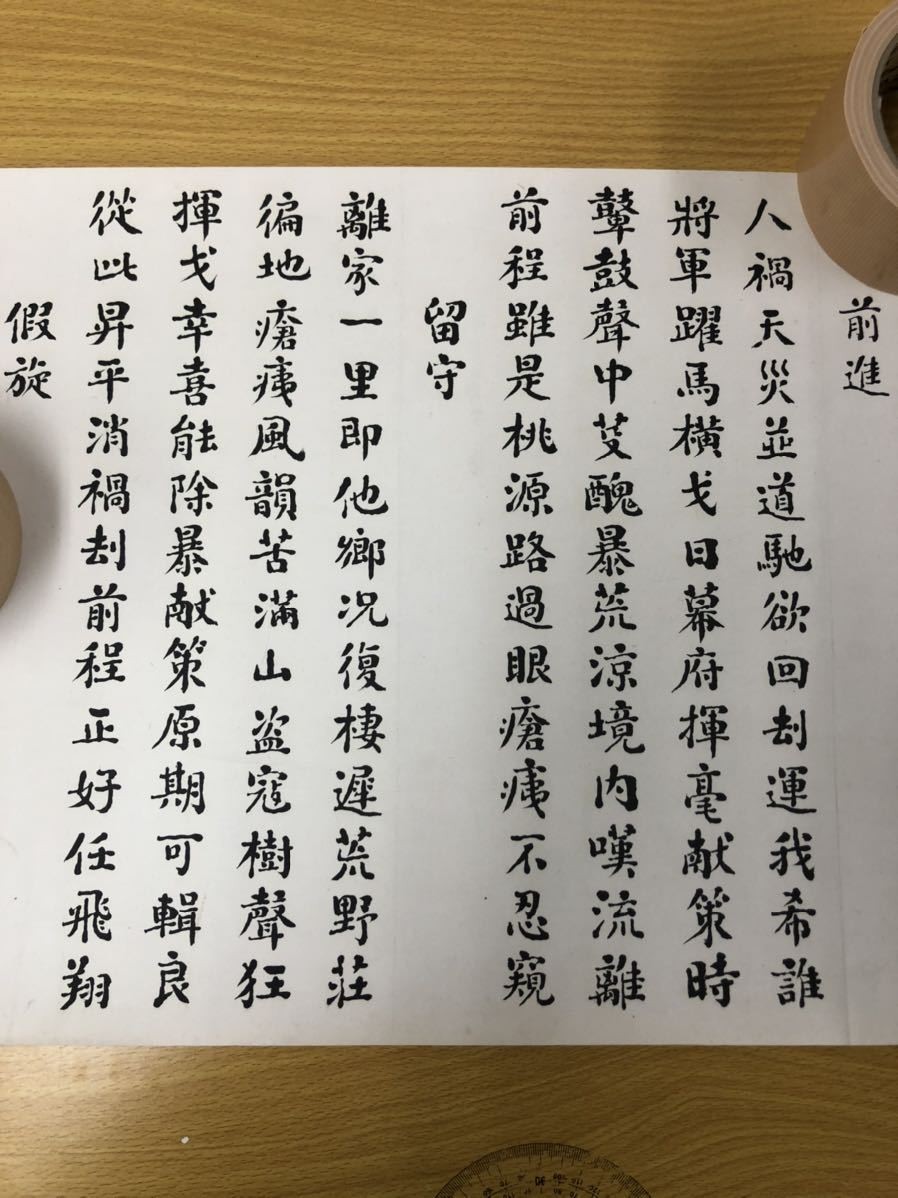 前進
人禍天災並道馳欲回刦運我希誰
將軍躍馬橫戈日幕府揮毫献策時
鼙鼓聲中芟醜暴荒涼境內嘆流離
前程雖是桃源路過眼瘡痍不忍窺
留守
離家一里即他鄉况復棲遲荒野莊
徧地瘡痍風韻苦滿山盗寇樹聲狂
揮戈幸喜能除暴献策原期可輯良
從此昇平消禍刦前程正好任飛翔
假旋